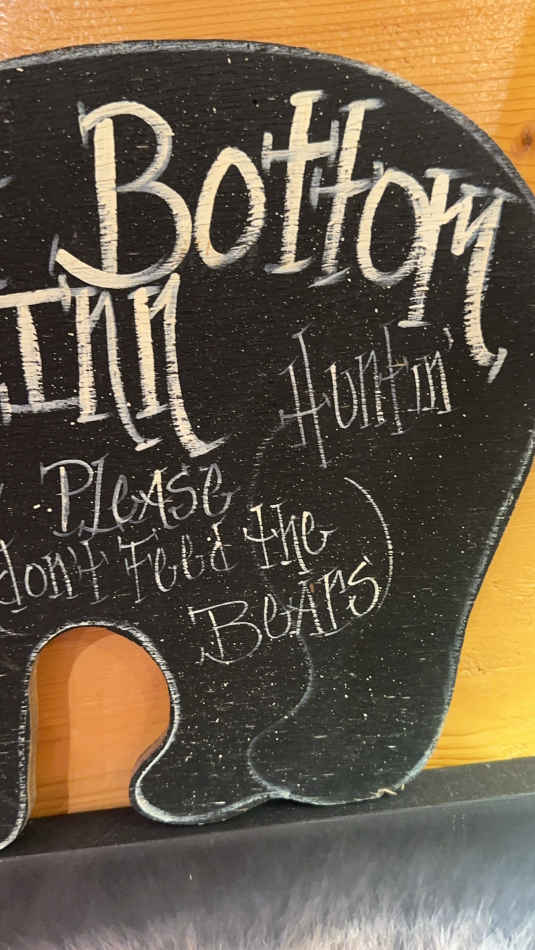 Bottom
Inn
Huntin'
Please
don't Feed the
Bears